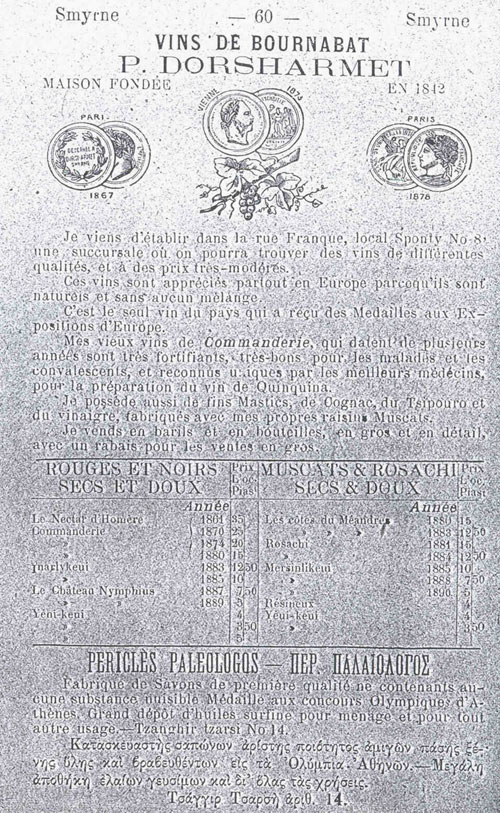 Smyrne — 60 — Smyrne
VINS DE BOURNABAT
P. DORSHARMET
MAISON FONDÉE EN 1842
VIENNE 1873
PARIS
1867
PARIS
1878
Je viens d'établir dans la rue Franque, local Sponty No 8
une succursale où on pourra trouver des vins de différentes
qualités, et à des prix très-modérés.
Ces vins sont appréciés partout en Europe parcequ'ils sont
naturels et sans aucun mélange.
C'est le seul vin du pays qui a reçu des Medailles aux Ex-
positions d'Europe.
Mes vieux vins de Commanderie, qui datent de plusieurs
années sont très fortifiants, très-bons pour les malades et les
convalescents, et reconnus uniques par les meilleurs médecins,
pour la préparation du vin de Quinquina.
Je possède aussi de fins Mastics, de Cognac, du Tsipouro et
du vinaigre, fabriqués avec mes propres raisins Muscats.
Je vends en barils et en bouteilles, en gros et en détail,
avec un rabais pour les ventes en gros.
ROUGES ET NOIRS
SECS ET DOUX
Prix
L'oc.
Piast
Année
Le Nectar d'Homère 1861 35
Commanderie 1870 25
» 1874 20
» 1880 15
Ynarlykeui 1883 12,50
» 1885 10
Le Château Nymphius 1887 7,50
» » 1889 5
Yéni-keui 4
» 3,50
» 5
MUSCATS & ROSACHI
SECS & DOUX
Prix
L'oc.
Piast
Année
Les côtes du Méandres 1880 15
» 1883 12,50
Rosachi 1881 15
» 1884 12,50
Mersinlikeui 1885 10
» 1888 7,50
» 1890 5
Résineux 4
Yéni-keui 4
» 3,50
» 5
PERICLÈS PALEOLOGOS — ΠΕΡ. ΠΑΛΑΙΟΛΟΓΟΣ
Fabrique de Savons de première qualité ne contenants au-
cune substance nuisible Médaille aux concours Olympiques d'A-
thènes. Grand dépôt d'huiles surfine pour menage et pour tout
autre usage.—Tzanghir tzarsi No 14.
Κατασκευαστὴς σαπώνων ἀρίστης ποιότητος ἀμιγῶν πάσης ξέ-
νης ὕλης καὶ βραβευθέντων εἰς τὰ Ὀλύμπια Ἀθηνῶν.—Μεγάλη
ἀποθήκη ἐλαίων γευσίμων καὶ δι' ὅλας τὰς χρήσεις.
Τσάγγιρ Τσαρσῆ ἀριθ. 14.